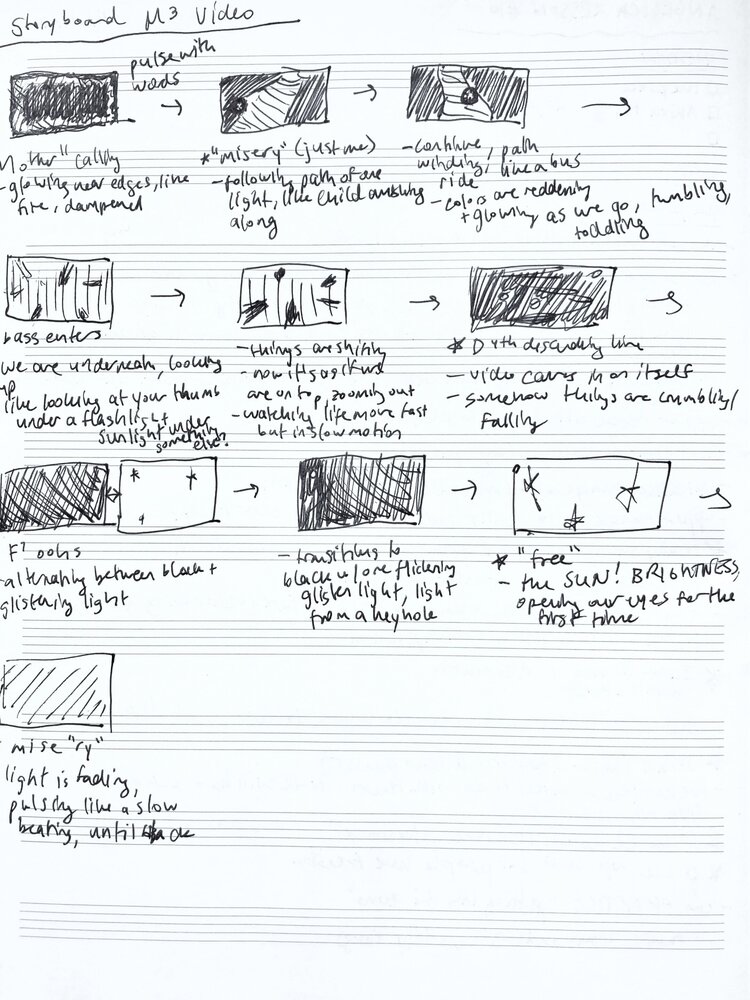 Storyboard M3 Video
pulse with
words
Mother" calling
- glowing near edges, like
fire, dampened
* "misery" (just me)
- following path of one
light, like child
along
- continue, path
winding, like a bus
ride
- colors are reddening
+ glowing as we go, tumbling,
toddling
bass enters
we are underneath, looking
up
like looking at your thumb
under a flashlight
sunlight under
something
else?
- things are shifting
- now it's as if we
are on top, zooming out
- watching life move fast
but in slow motion
* D 4th descending line
- video caves in on itself
- somehow things are crumbling/
falling
F² oohs
- alternating between black +
glistening light
- transitions to
black w/ one flickering
glisten light, light
from a keyhole
* "free"
- the SUN! BRIGHTNESS,
opening our eyes for the
first time
mise "ry"
light is fading,
pulsing like a slow
beating, until